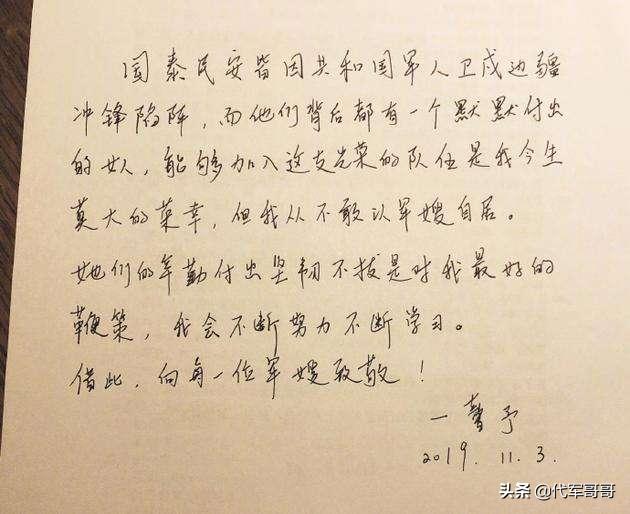 国泰民安皆因共和国军人卫戍边疆
冲锋陷阵，而他们背后都有一个默默付出
的女人，能够加入这支光荣的队伍是我今生
莫大的荣幸，但我从不敢以军嫂自居。
她们的辛勤付出坚韧不拔是对我最好的
鞭策，我会不断努力不断学习。
借此，向每一位军嫂致敬！
一馨予
2019. 11. 3.
头条 @代军哥哥